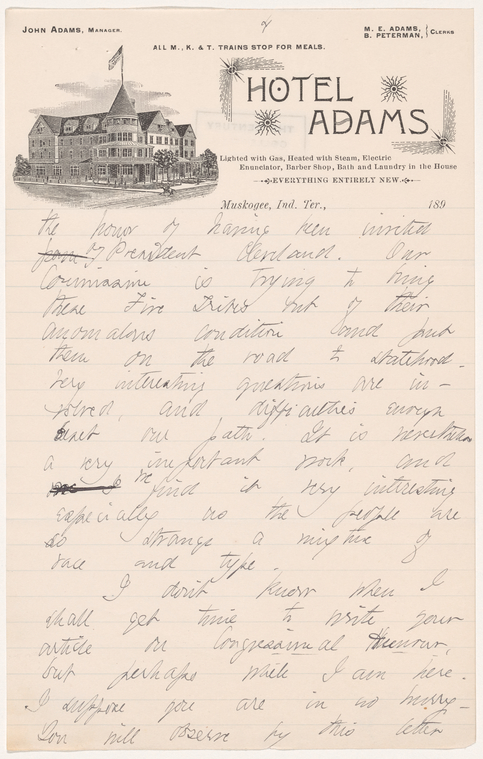 2
JOHN ADAMS, MANAGER.
M. E. ADAMS,
B. PETERMAN, } CLERKS
ALL M., K. & T. TRAINS STOP FOR MEALS.
HOTEL
ADAMS
Lighted with Gas, Heated with Steam, Electric
Enunciator, Barber Shop, Bath and Laundry in the House
EVERYTHING ENTIRELY NEW.
Muskogee, Ind. Ter., 189
the honor of having been invited
of President Cleveland. Our
Commission is trying to bring
these Five Tribes out of their
anomalous condition and put
them on the road to statehood.
Very interesting questions are in-
volved, and difficulties enough
beset our path. It is nevertheless
a very important work, and
we find it very interesting
especially as the people are
so strange a mixture of
race and type.
I don't know when I
shall get time to write your
article on Congressional Humour,
but perhaps while I am here.
I suppose you are in no hurry-
You will observe by this letter